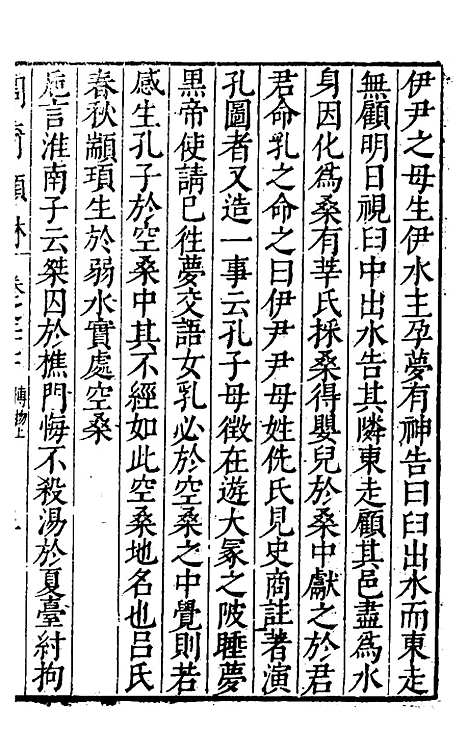 伊尹之母生伊水主孕夢有神告曰臼出水而東走
無顧明日視臼中出水告其隣東走顧其邑盡為水
身因化為桑有莘氏採桑得嬰兒於桑中獻之於君
君命乳之命之曰伊尹尹母姓侁氏見史商註著演
孔圖者又造一事云孔子母徵在遊大冢之陂睡夢
黒帝使請已徃夢交語女乳必於空桑之中覺則若
感生孔子於空桑中其不經如此空桑地名也吕氏
春秋顓頊生於弱水實處空桑
巵言淮南子云桀囚於焦門悔不殺湯於夏臺紂拘
博物上